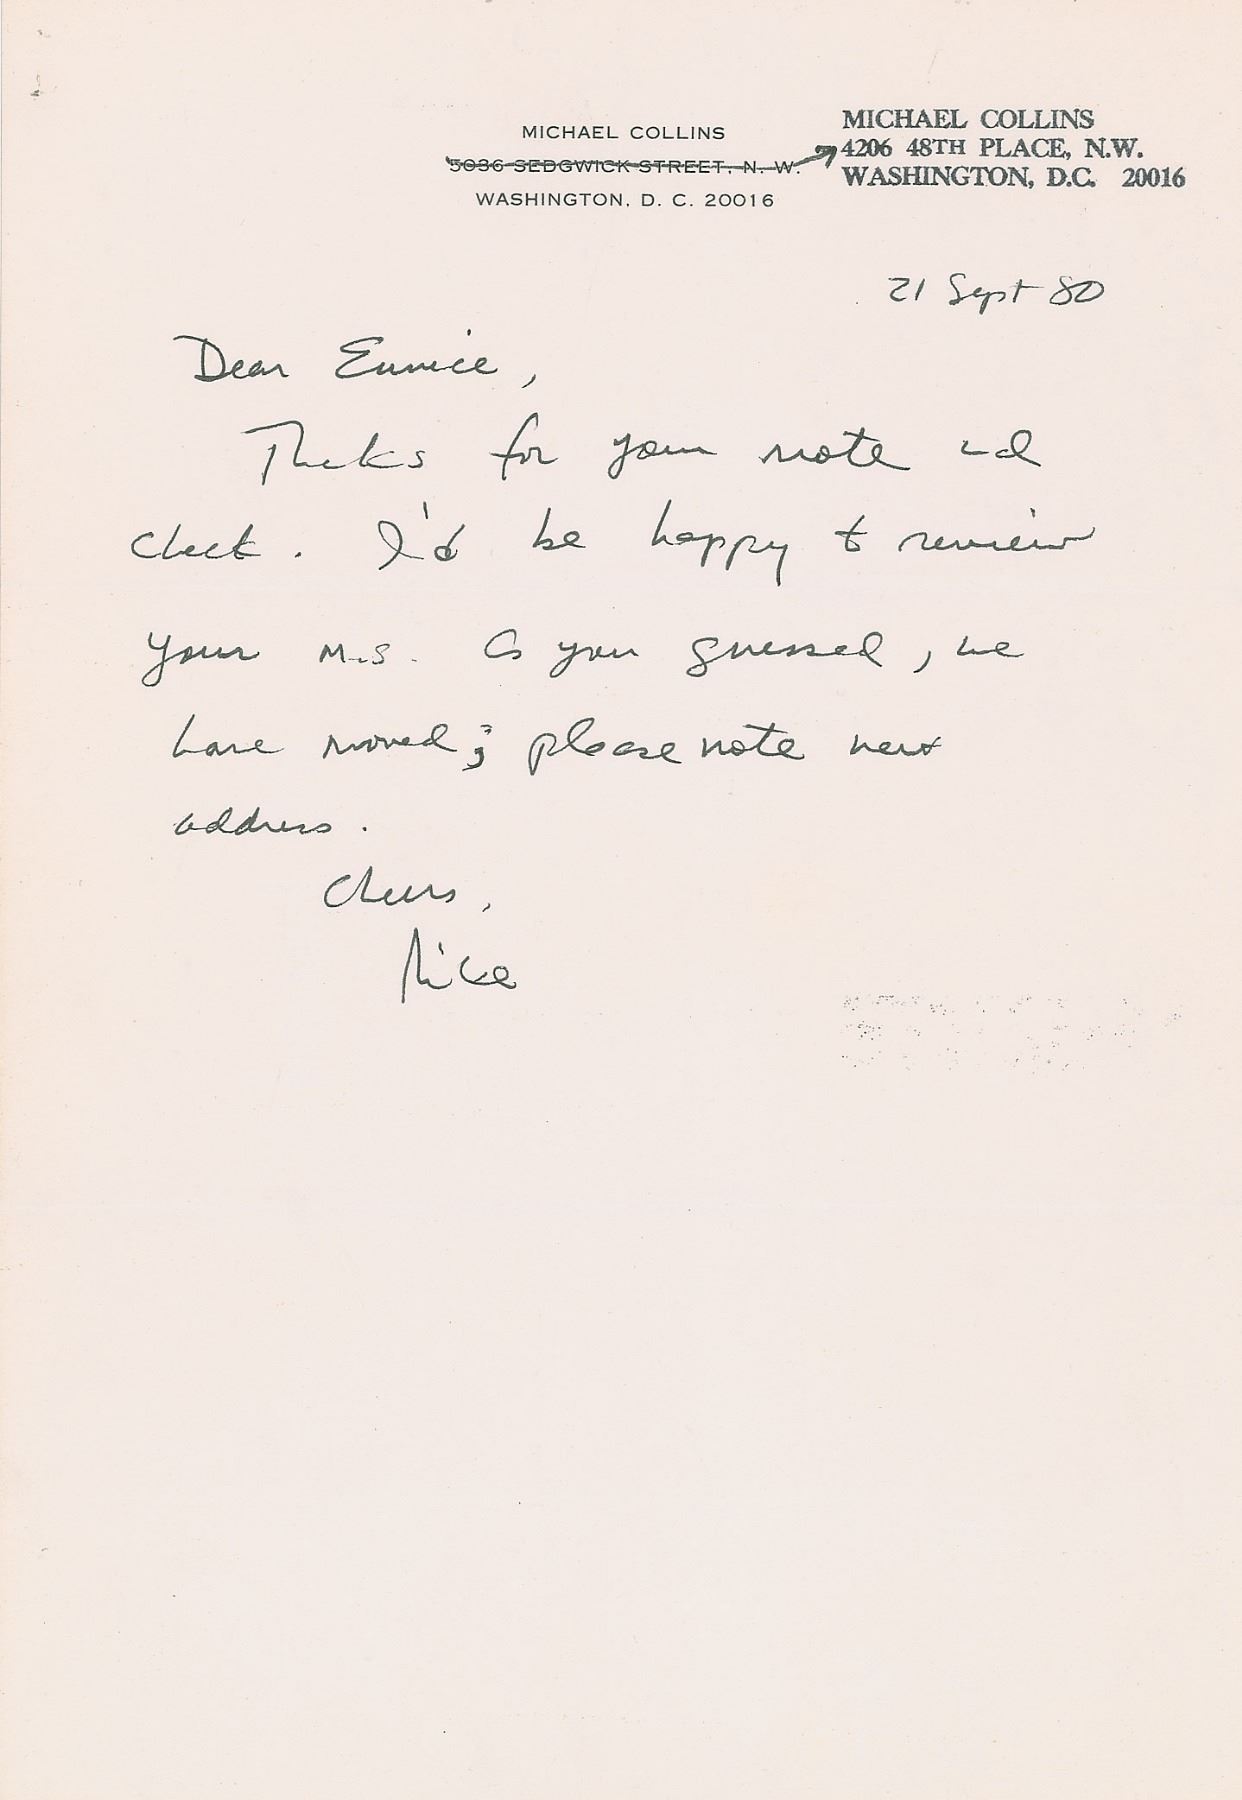 MICHAEL COLLINS
5036 SEDGWICK STREET, N. W.
WASHINGTON, D. C. 20016
MICHAEL COLLINS
4206 48TH PLACE, N.W.
WASHINGTON, D.C. 20016
21 Sept 80
Dear Eunice,
Thanks for your note and
check. I'd be happy to review
your m.s. As you guessed, we
have moved; please note new
address.
Cheers,
Mike